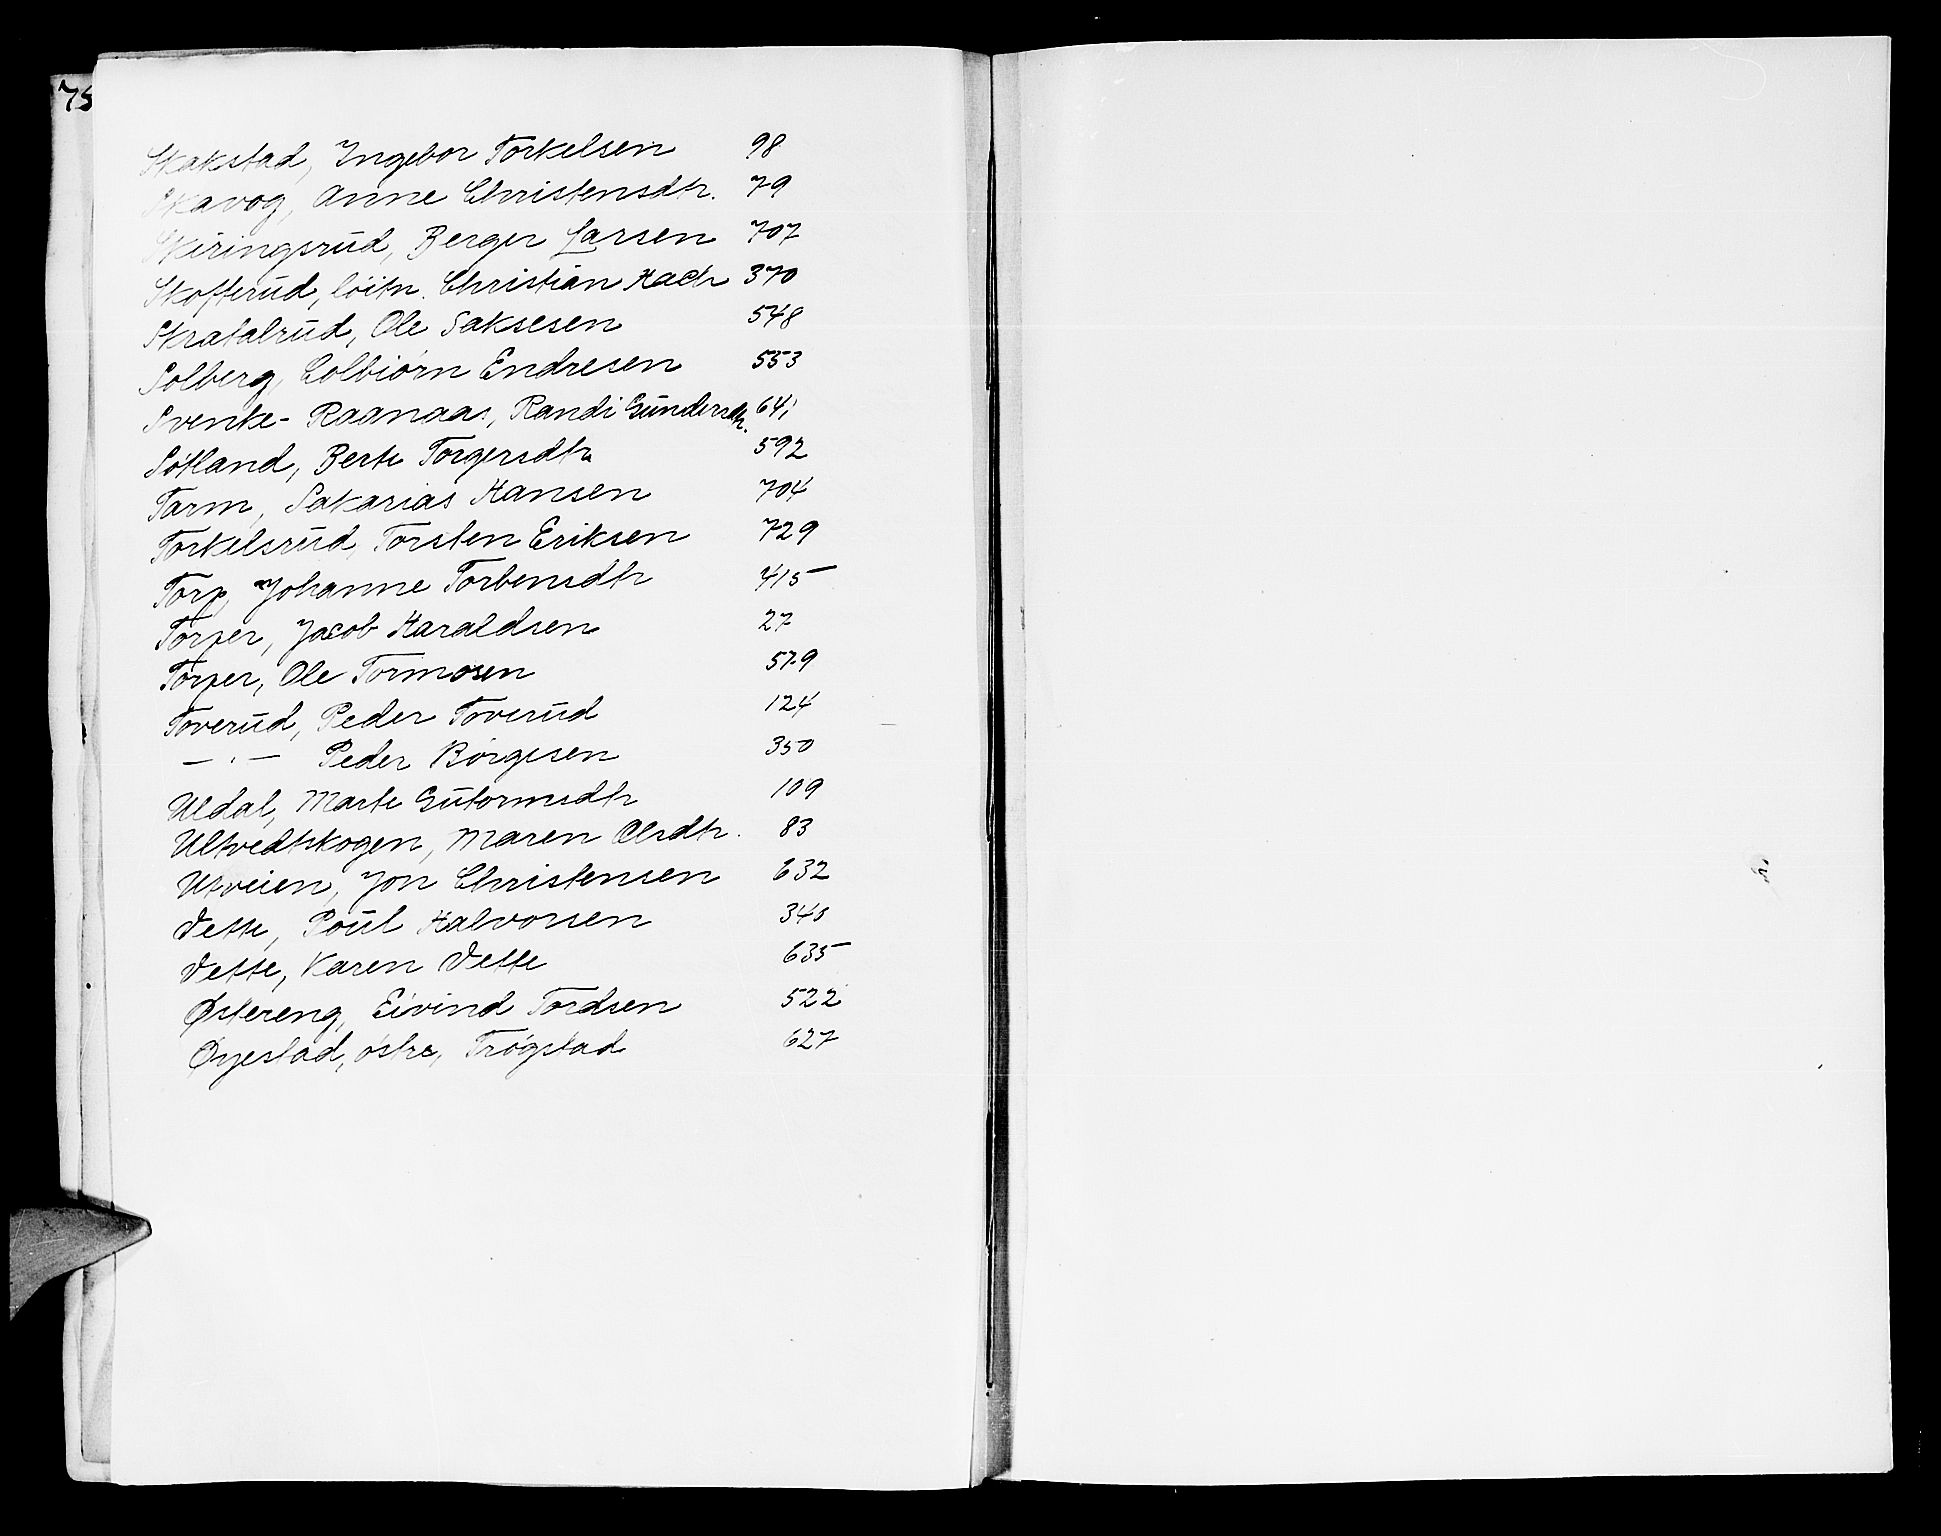 75
Skakstad, Ingebor Torkelsen 98
Skavog, Anne Christensdtr. 79
Skiringsrud, Berger Larsen 707
Skofterud, löitn. Christian Hach 370
Skratalrud, Ole Saksesen 548
Solberg, Colbiørn Endresen 553
Svenke- Raanaas, Randi Gundersdtr. 641
Søtland, Berte Torgersdtr 592
Tarm, Sakarias Hansen 704
Torkelsrud, Torsten Eriksen 729
Torp, Johanne Torbensdtr 415
Torper, Jacob Haraldsen 27
Torper, Ole Tormosen 579
Toverud, Peder Toverud 124
— · — Peder Börgesen 350
Uldal, Marte Gutormsdtr 109
Ultvedtskogen, Maren Olsdtr. 83
Utveien, Jon Christensen 632
Vette, Poul Halvorsen 345
Vette, Karen Vette 635
Østereng, Eivind Tordsen 522
Øyestad, östre, Trögstad 627